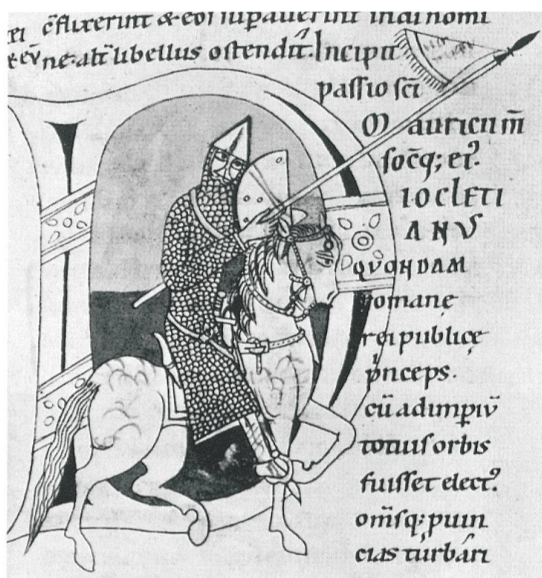 c̄flixerint & eos sup̄auerint indinomi
ne. abt̄ libellus ostendit. Incipit
passio sc̄i
Mauricii m̄
soc̄q; ei?
IOCLETI
ANV
QVONDAM
romane
rei publicę
p̄nceps.
cū ad imp̄iv̄
totius orbis
fuisset elect?
om̄sq; puin
cias turbari